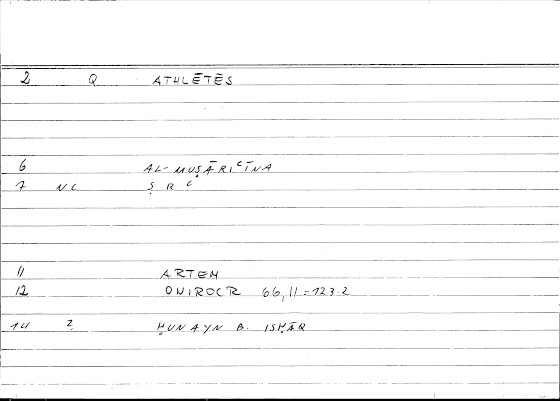 2 Q ATHLĒTĒS
6 AL-MUṢĀRIʿĪNA
7 NC Ṣ R ʿ
11 ARTEM
12 ONIROCR 66,11=123.2
14 2 ḤUNAYN B. ISḤĀQ